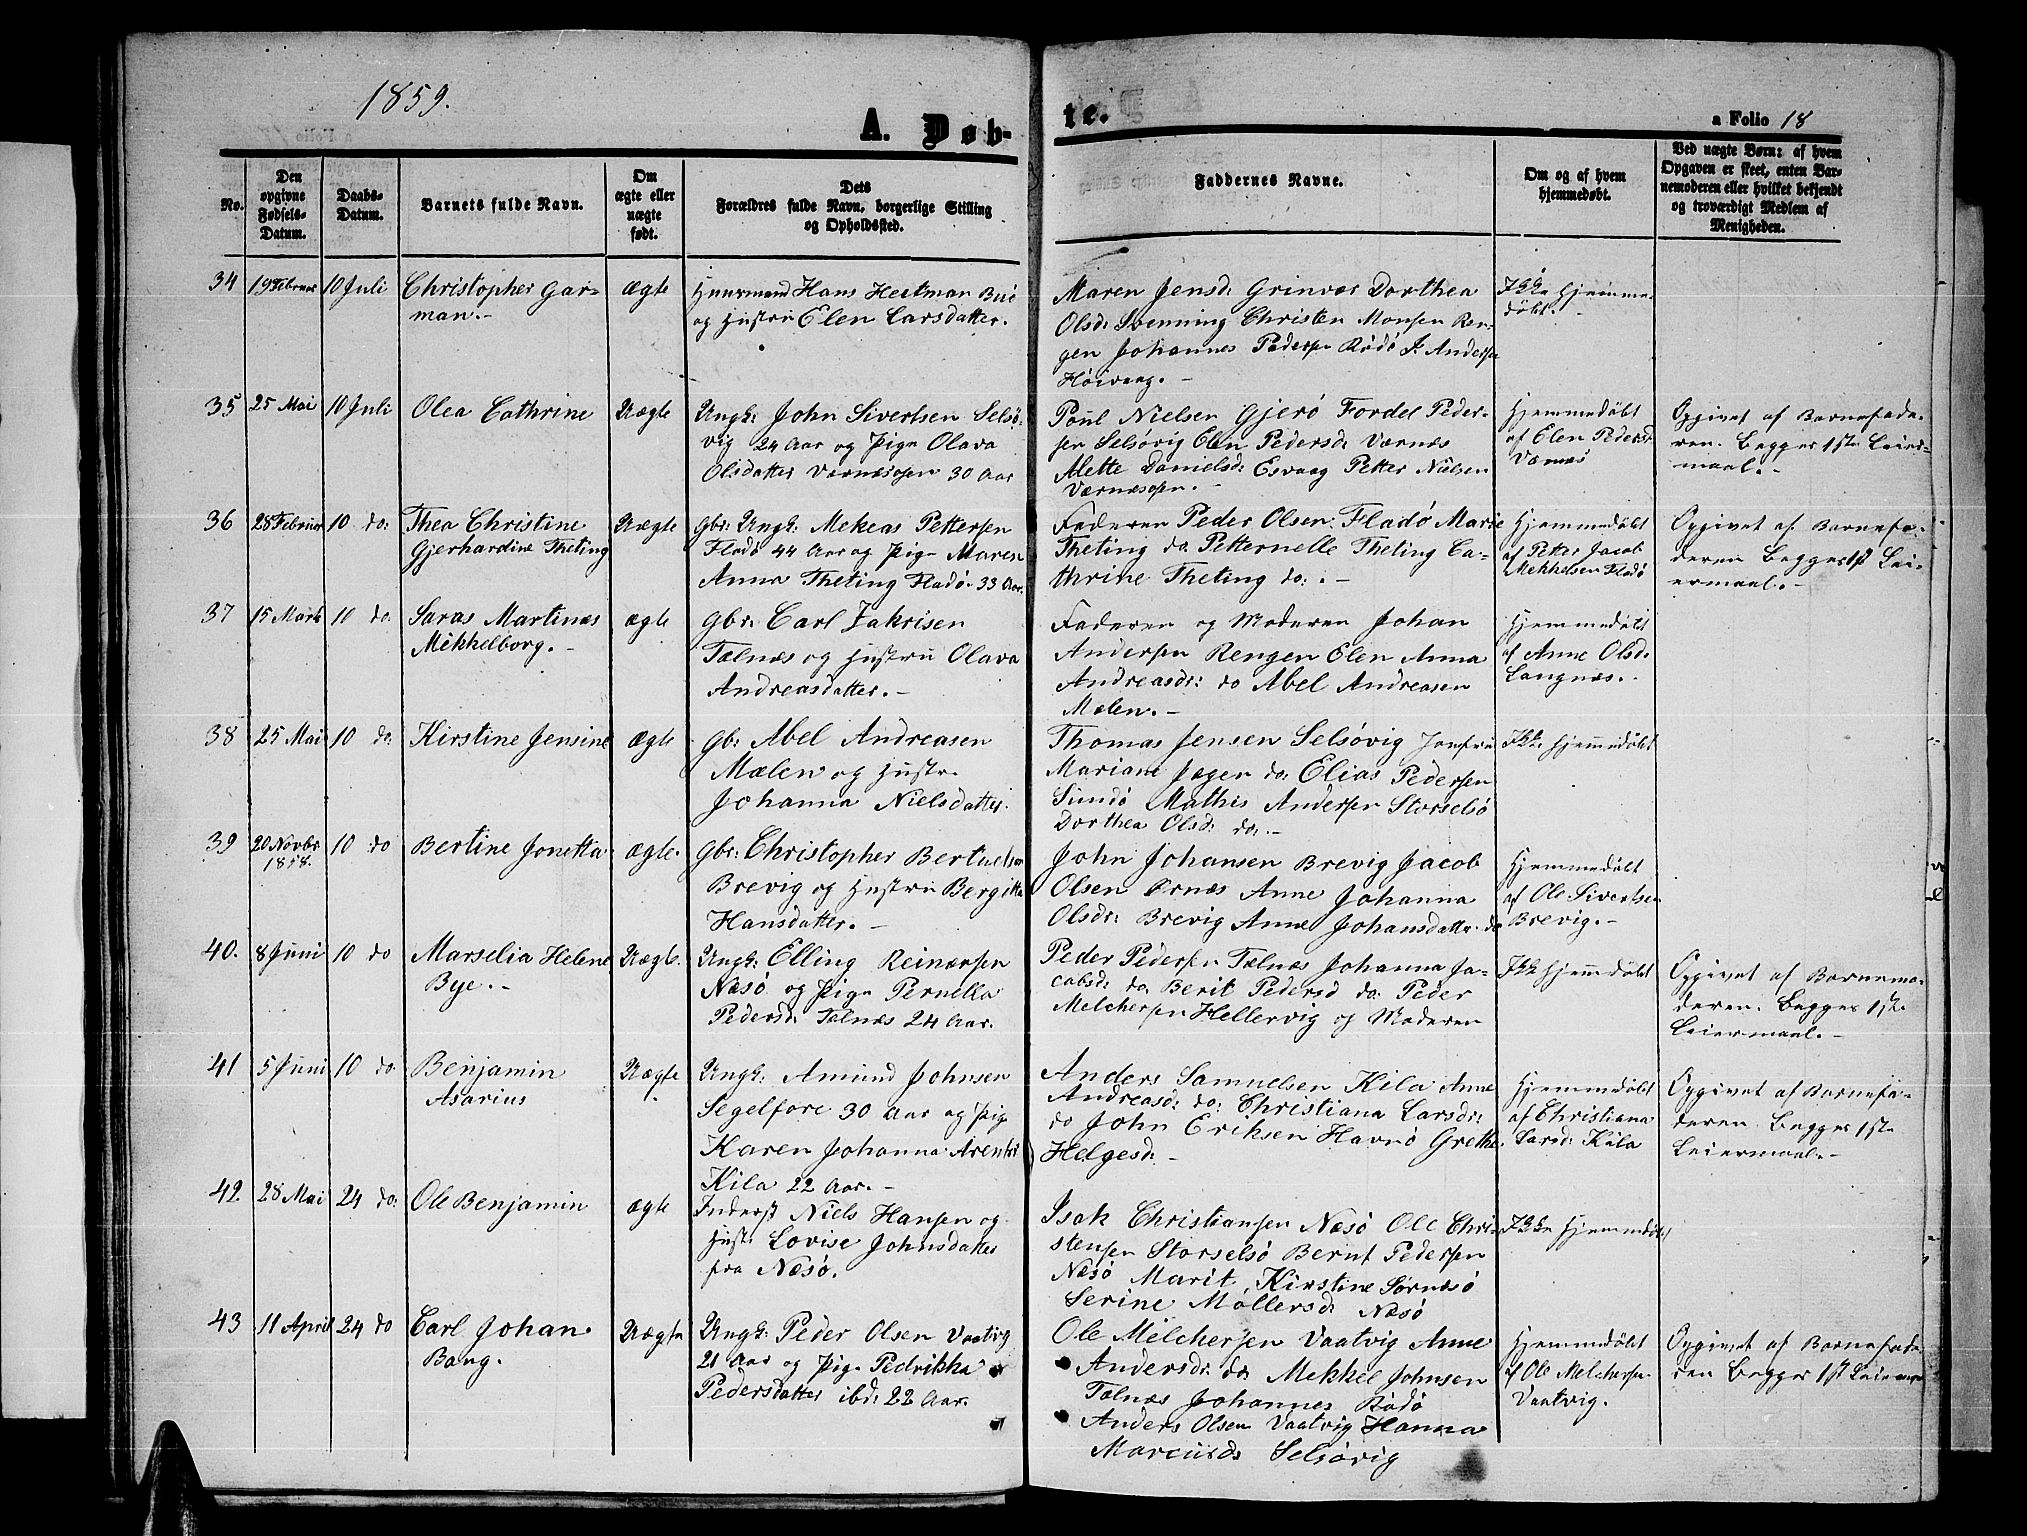 1859.
A. Døb-
te.
a Folio 18
No.
Den
opgivne
Fødsels-
Datum.
Daabs-
Datum.
Barnets fulde Navn.
Om
ægte eller
uægte
født.
Dets
Forældres fulde Navn, borgerlige Stilling
og Opholdssted.
Faddernes Navne.
Om og af hvem
hjemmedøbt.
Ved uægte Børn: af hvem
Opgaven er skeet, enten Bar-
nemoderen eller hvilket bekjendt
og troværdigt Medlem af
Menigheden.
34 19 Februar 10 Juli Christopher Gar-
man.-
ægte
Huusmand Hans Heitman Bue
og Hustru Elen Larsdatter.
Maren Jensd: Grinvær Dorthea
Olsd: Svenning Christen Monsen Ren-
gen Johannes Pedersen Rødø J. Andersen
Høivaag.-
Ikke Hjemme-
døbt.
35 25 Mai 10 Juli Olea Cathrine
Uægte
Ungk: John Sivertsen Selsø-
vig 24 Aar og Pige Olava
Olsdatter Værnæsosen 30 Aar
Poul Nielsen Gjerø Fordel Peder-
sen Selsøvig Elen Pedersd: Værnæs
Mette Danielsd: Esvaag Petter Nielsen
Værnæsosen.-
Hjemmedøbt
af Elen Pedersd:
Værnæs
Opgivet af Barnefade-
ren. Begges 1ste Leier-
maal.-
36 28 Februar 10 do: Thea Christine
Gjerhardine Theting
Uægte
Gbr: Ungk: Mekeas Pettersen
Fladø 44 Aar og Pige Maren
Anna Theting Fladø 33 Aar.
Faderen Peder Olsen Fladø Marie
Theting do: Petternelle Theting Ca-
thrine Theting do:.-
Hjemmedøbt
af Petter Jacob
Mekkelsen Fladø
Opgivet af Barnefa-
deren Begges 1st Lei-
ermaal.-
37 15 Marts 10 do: Saras Martinæs
Mikkelborg.-
ægte
Gbr: Carl Zakrisen
Tælnæs og Hustru Olava
Andreasdatter.-
Faderen og Moderen Johan
Andersen Rengen Elen Anna
Andreasdr: do Abel Andreasen
Mælen.-
Hjemmedøbt
af Anne Olsd:
Langnæs.-
38 25 Mai 10 do: Kirstine Jensine
ægte
Gb: Abel Andreasen
Mælen og Hustr.
Johanna Nielsdatter.
Thomas Jensen Selsøvig Jomfru
Mariane Jæger do: Elias Pedersen
Sundø Mathis Andersen Storselsø
Dorthea Olsd: do:-
Ikke Hjemmedøbt
39 20 Novbr
1858. 10 do Bertine Jonetta
ægte.
Gbr: Christopher Bertuelsen
Brevig og Hustru Bergitta
Hansdatter.-
John Johansen Brevig Jacob
Olsen Ørnæs Anne Johanna
Olsdr: Brevig Anne Johansdatter do
Hjemmedøbt
af Ole Sivertsen
Brevig.-
40. 8 Juni 10 do Marselia Helene
Bye.-
Uægte.
Ungk: Elling Reinærsen
Næsø og Pige Pernella
Pedersd: Tælnæs 24 Aar.
Peder Pedersen Tælnæs Johanna Ja-
cobsd: do: Berit Pedersd do: Peder
Melchersen Hellervig og Moderen
Ikke Hjemmedøbt
Opgivet af Barnemo-
deren. Begges 1ste
Leiermaal.-
41 5 Juni 10 do Benjamin
Asarius
Uægte
Ungk: Amund Johnsen
Segelfore 30 Aar og Pige
Karen Johanna Arentsd
Kila 22 Aar.-
Anders Samuelsen Kila Anne
Andreasd: do: Christiana Larsdr:
do John Eriksen Havnø Grethe
Helgesd:-
Hjemmedøbt
af Christiana
Larsd: Kila
Opgivet af Barnefa-
deren. Begges 1ste
Leiermaal.-
42. 28 Mai 24 do: Ole Benjamin
ægte
Inderst Niels Hansen og
Hust: Lovise Johnsdatter
fra Næsø.
Isak Christiansen Næsø Ole Chri-
stensen Storselsø Bernt Pedersen
Næsø Marit Kirstine Sørnæsø
Serine Møllersd: Næsø
Ikke Hjemmedøbt
43 11 April 24 do Carl Johan
Bang.
Uægte
Ungk: Peder Olsen Vaatvig
21 Aar og Pige Pedrikka
Pedersdatter ibd: 22 Aar.
Ole Melchersen Vaatvig Anne
Andersdr: do Mekkel Johnsen
Tælnæs Johannes Rødø
Anders Olsen Vaatvig Hanna
Marcusd: Selsøvig
Hjemmedøbt
af Ole Melchersen
Vaatvig.
Opgivet af Barnefade-
ren Begges 1st Leiermaal